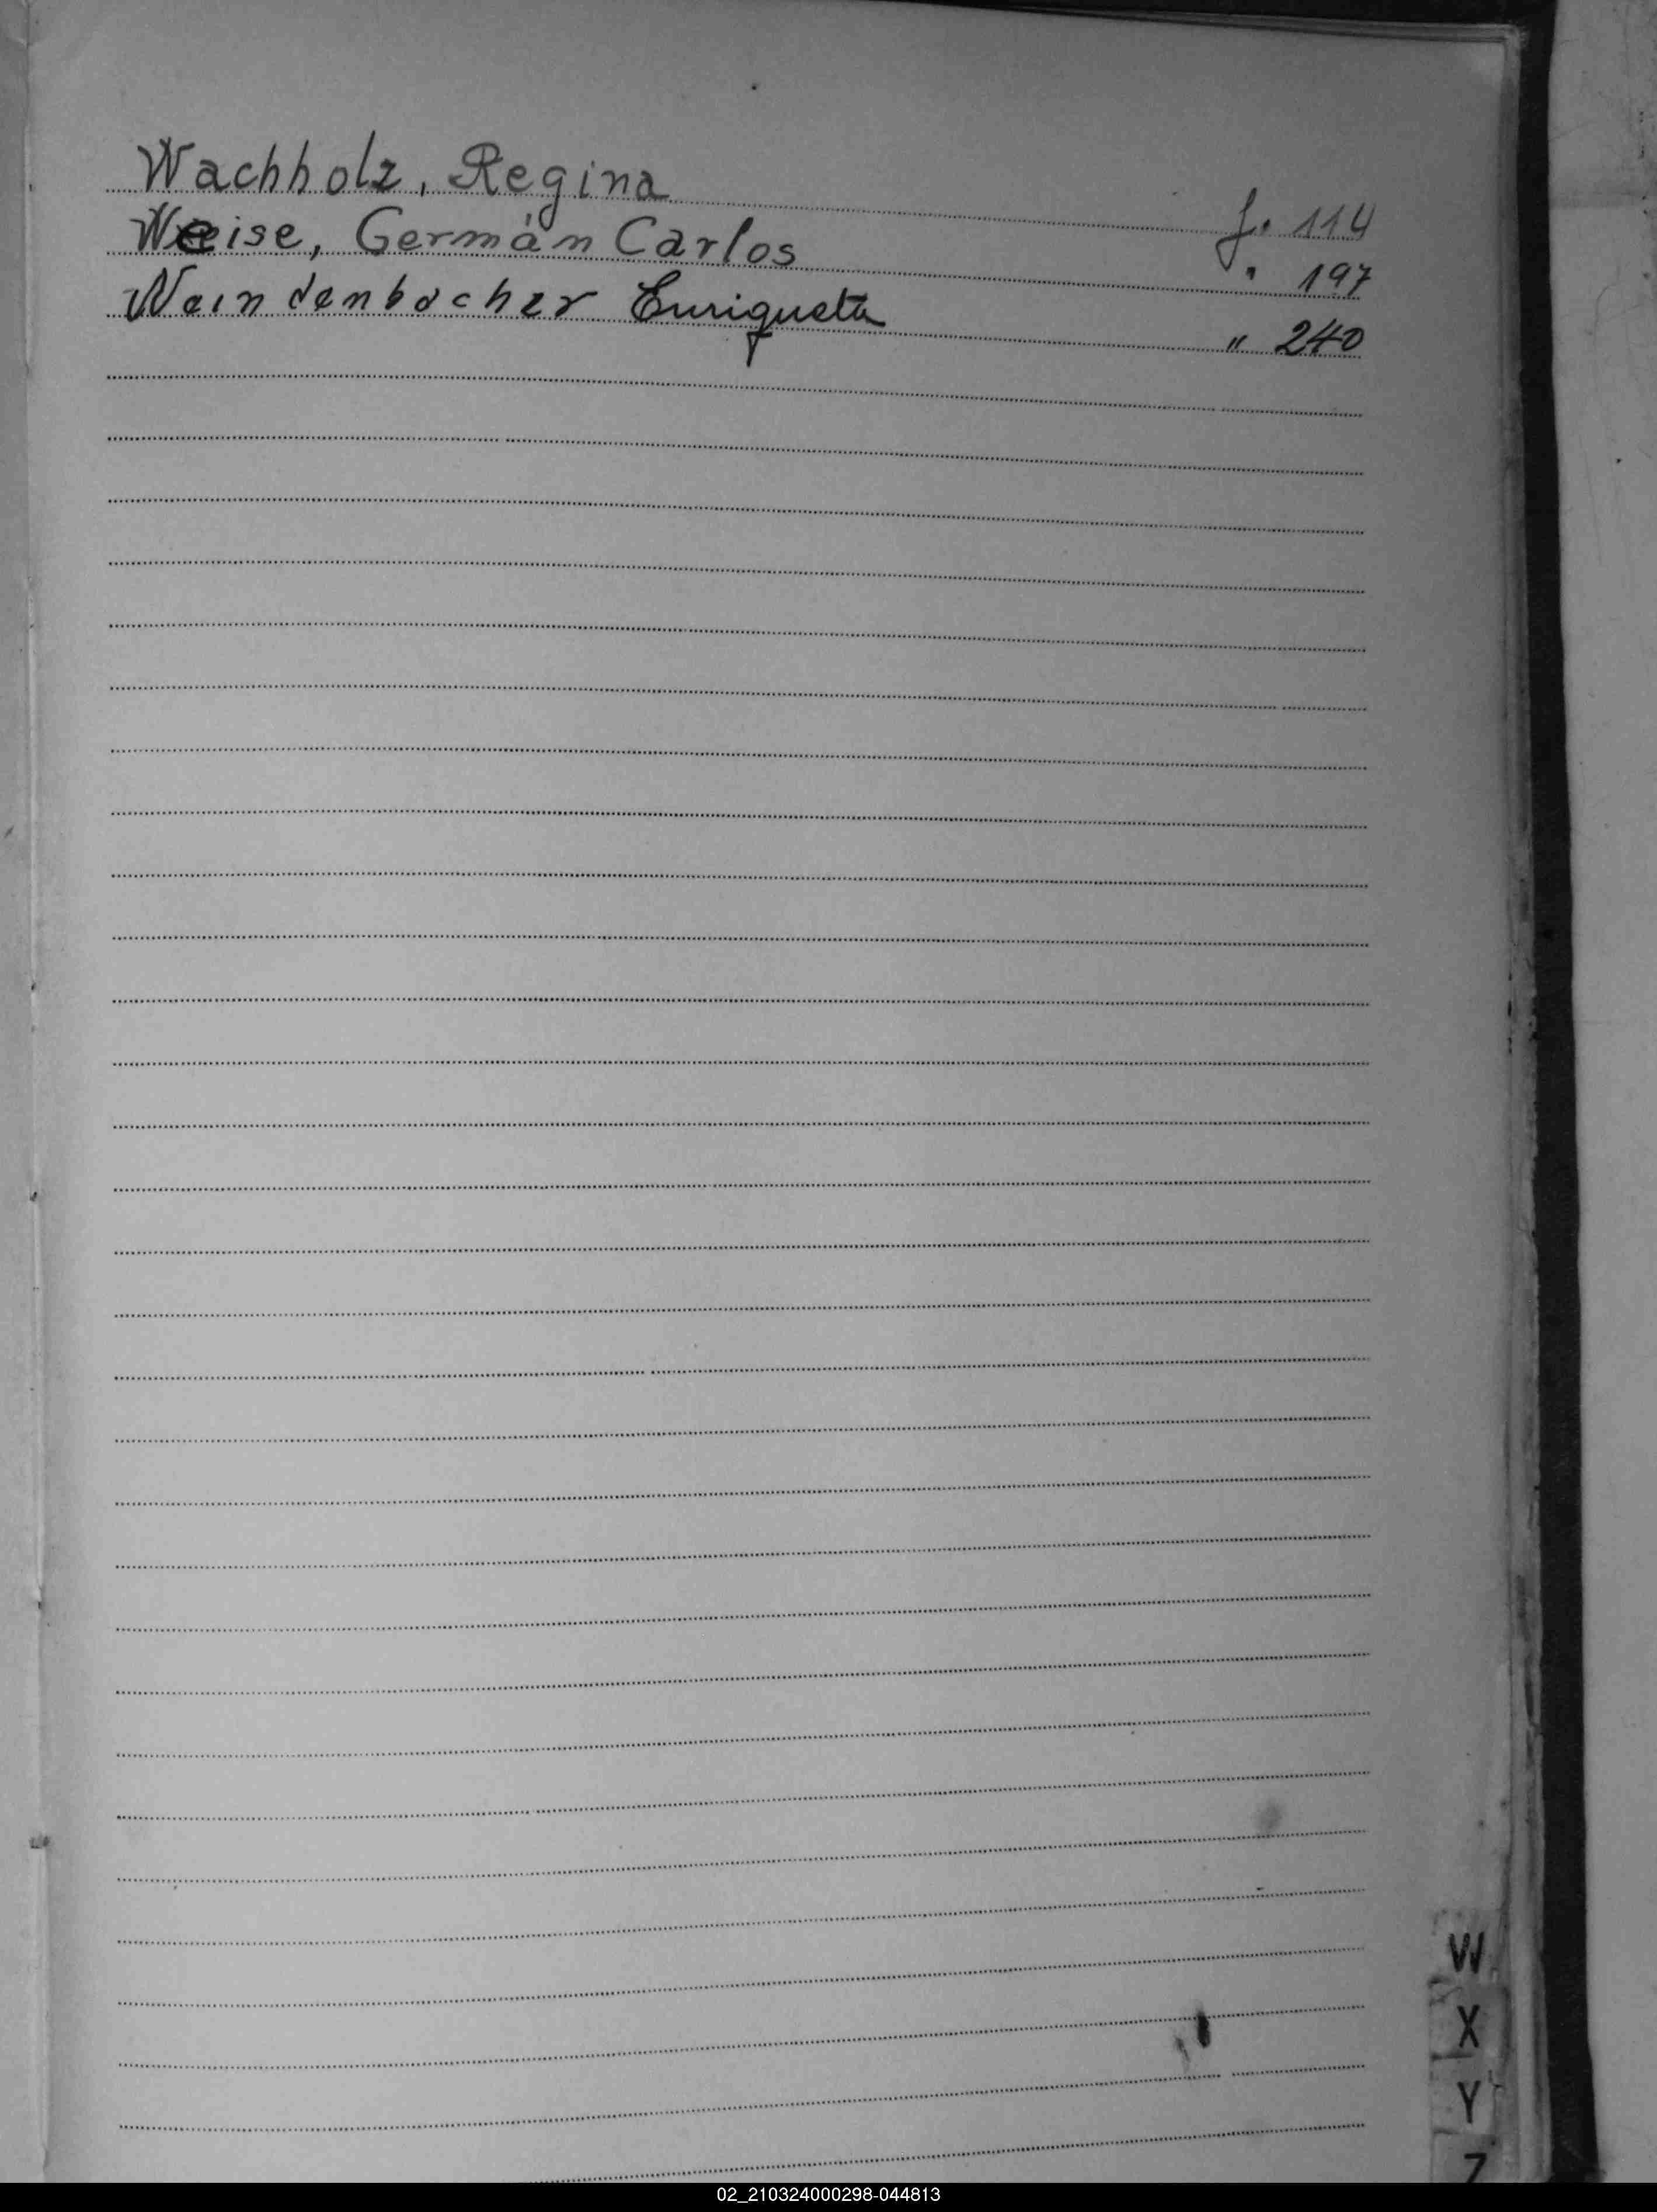 Wachholz, Regina f. 114
Weise, Germán Carlos " 197
Weindenbacher Enriqueta " 240
W
X
Y
Z
02_210324000298-044813